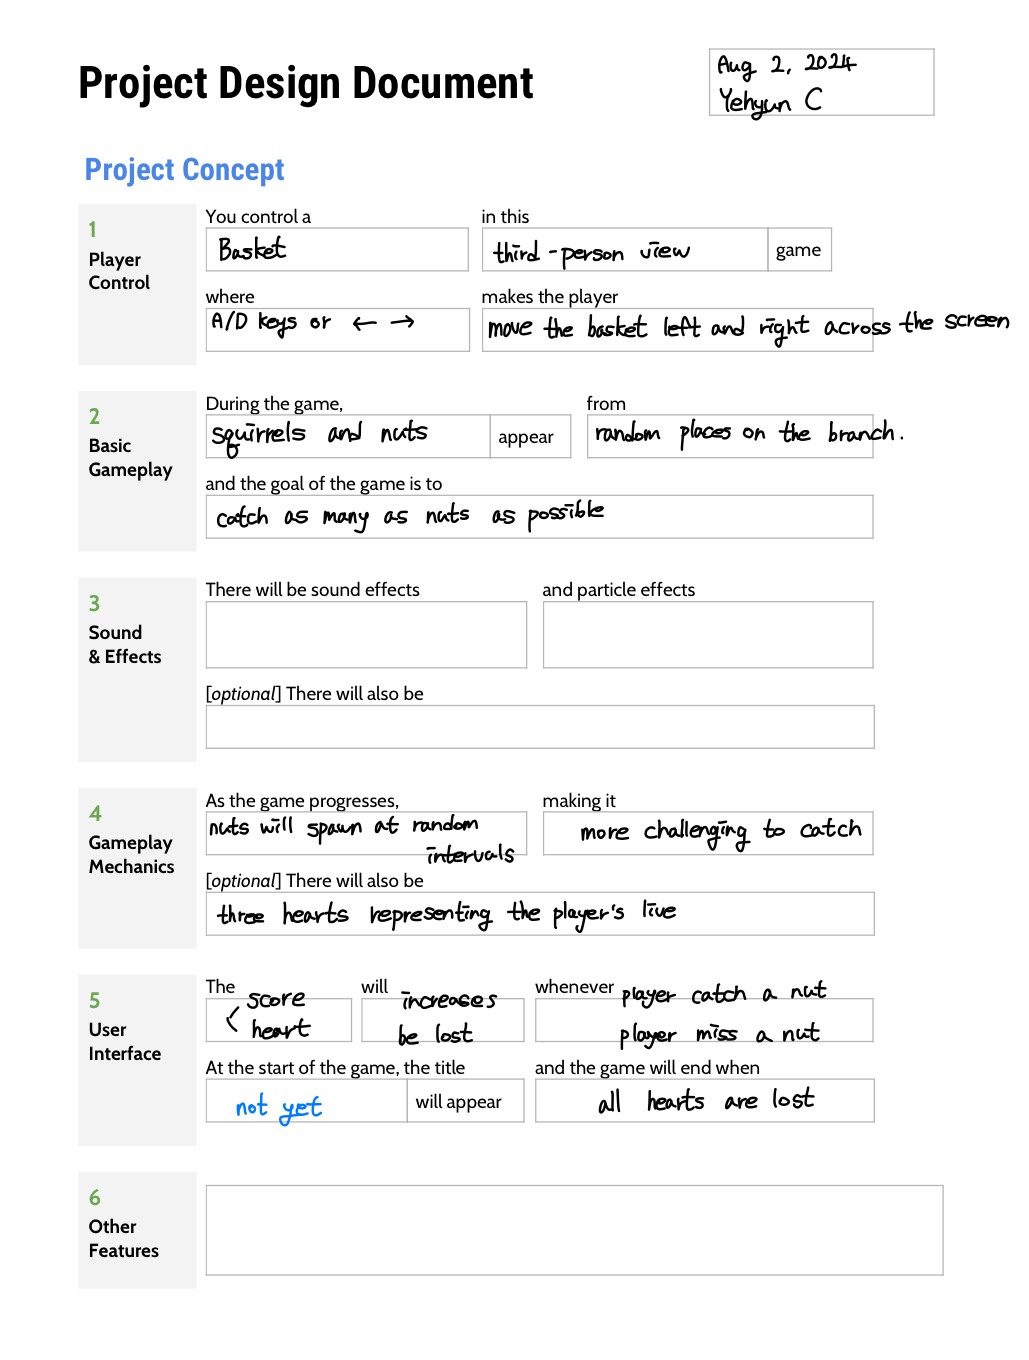 Project Design Document
Aug 2, 2024
Yehyun C
Project Concept
1
Player
Control
You control a
Basket
in this
third-person view
game
where
A/D keys or ← →
makes the player
move the basket left and right across the screen
2
Basic
Gameplay
During the game,
squirrels and nuts
appear
from
random places on the branch.
and the goal of the game is to
catch as many as nuts as possible
3
Sound
& Effects
There will be sound effects
and particle effects
[optional] There will also be
4
Gameplay
Mechanics
As the game progresses,
nuts will spawn at random
intervals
making it
more challenging to catch
[optional] There will also be
three hearts representing the player's live
5
User
Interface
The
score
heart
will
increases
be lost
whenever
player catch a nut
player miss a nut
At the start of the game, the title
not yet
will appear
and the game will end when
all hearts are lost
6
Other
Features